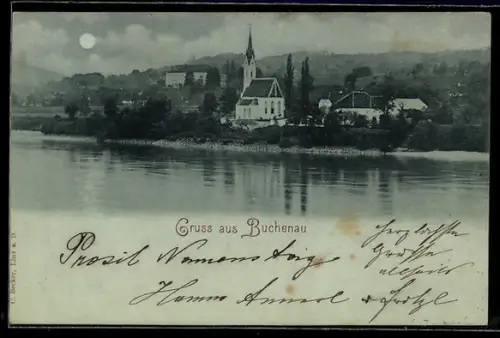 Gruss aus Buchenau
Prosit Namenstag
herzlichste
Grüsse
allseits
Hanns Annerl + Fritzl
C. Becker, Linz a. D.